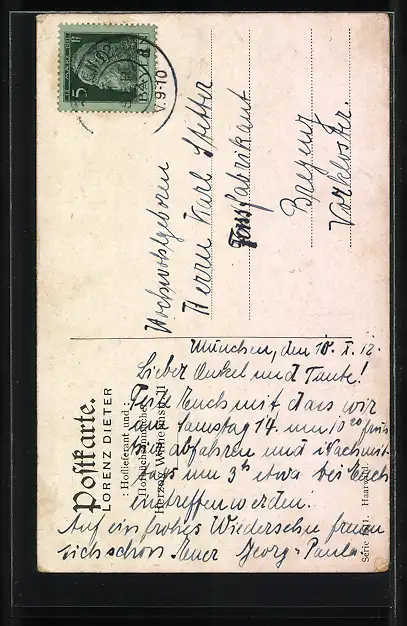 Postkarte.
LORENZ DIETER
: Hoflieferant und :
BAYERN
5
V. 9-10
Hochwohlgeboren
Herrn Karl Stetter
Fabrikant
Bregenz
Vorkloster.
München, den 10. X. 12.
Lieber Onkel und Tante!
Teile Euch mit dass wir
am Samstag 14. um 10 20 früh
hier abfahren und Nachmit
tags um 3h etwa bei Euch
eintreffen werden.
Auf ein frohes Wiedersehn freuen
sich schon Euer Georg - Paula.
Serie